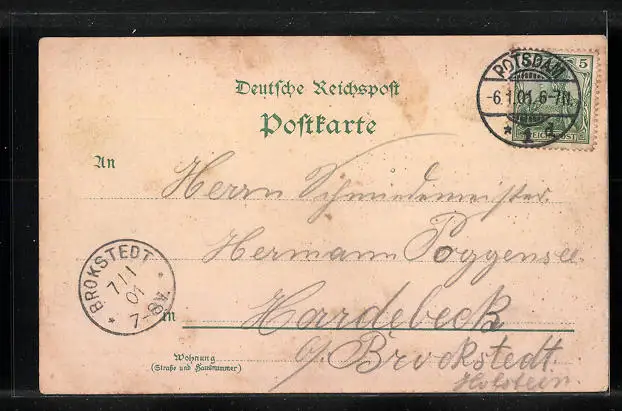 Deutsche Reichspost
Postkarte
POTSDAM
-6.1.01.6-7N.
* 1 d.
5
REICHSPOST
An
Herrn Schmiedemeister
Hermann Poggensee
BROKSTEDT
7/1
01
7-8V.
in Hardebeck
p/ Brockstedt.
Holstein.
Wohnung
(Straße und Hausnummer)